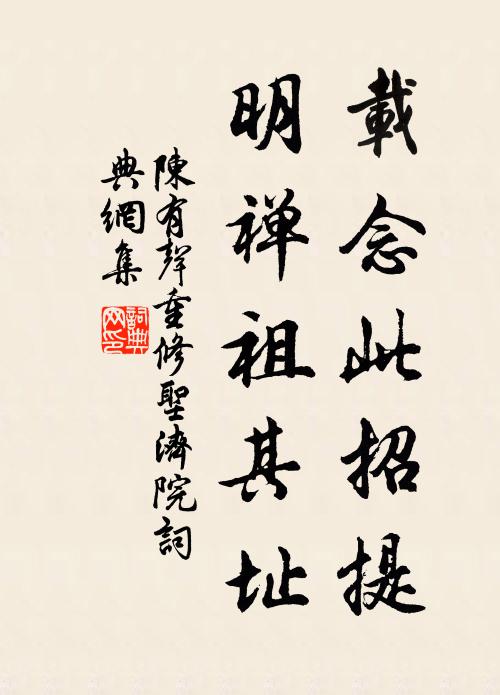 載念此招提
明禅祖其址
陳有聲重修聖濟院詞
典網集
詞典网印